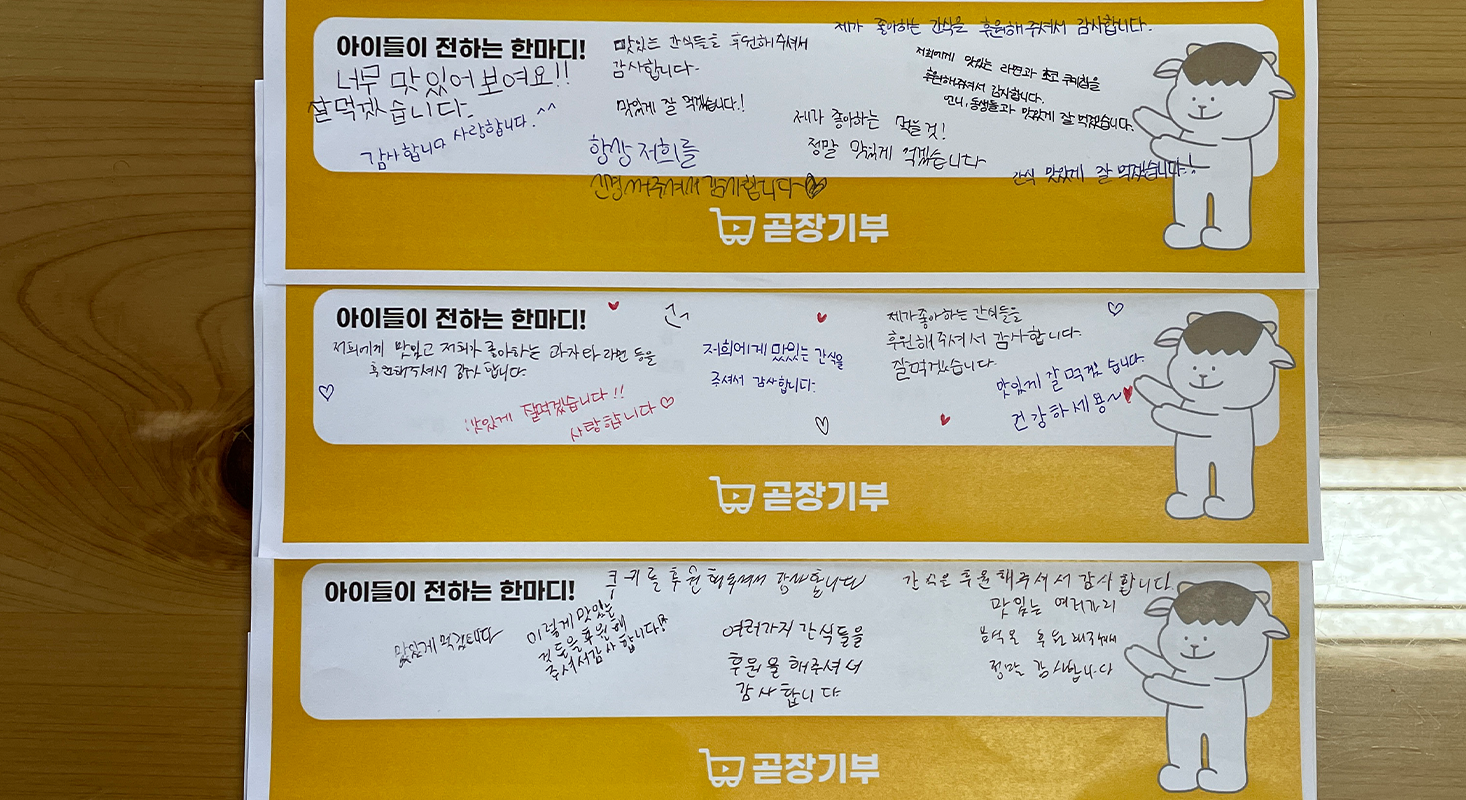 아이들이 전하는 한마디!
너무 맛있어 보여요!!
잘먹겠습니다.
감사합니다 사랑합니다. ^^
맛있는 간식들을 후원해주셔서
감사합니다.
맛있게 잘 먹겠습니다!
항상 저희를
신경써주셔서 감사합니다♡
제가 좋아하는 간식을 후원해주셔서 감사합니다.
저희에게 맛있는 라면과 초코 쿠키칩을
후원해주셔서 감사합니다.
언니, 동생들과 맛있게 잘 먹겠습니다.
제가 좋아하는 먹을 것!
정말 맛있게 먹겠습니다
간식 맛있게 잘 먹겠습니다!
곧장기부
아이들이 전하는 한마디!
저희에게 맛있고 저희가 좋아하는 과자랑 라면 등을
후원해주셔서 감사합니다.
맛있게 잘먹겠습니다!!
사랑합니다♡
저희에게 맛있는 간식을
주셔서 감사합니다.
제가좋아하는 간식들을
후원해주셔서 감사합니다.
잘먹겠습니다.
맛있게 잘먹겠습니다.
건강하세용~♥
곧장기부
아이들이 전하는 한마디!
쿠키를 후원해주셔서 감사합니다
맛있게 먹겠습니다
이렇게 맛있는
것들을 후원해
주셔서 감사합니다!
여러가지 간식들을
후원을 해주셔서
감사합니다
간식을 후원해주셔서 감사합니다
맛있는 여러가지
음식을 후원해주셔서
정말 감사합니다
곧장기부